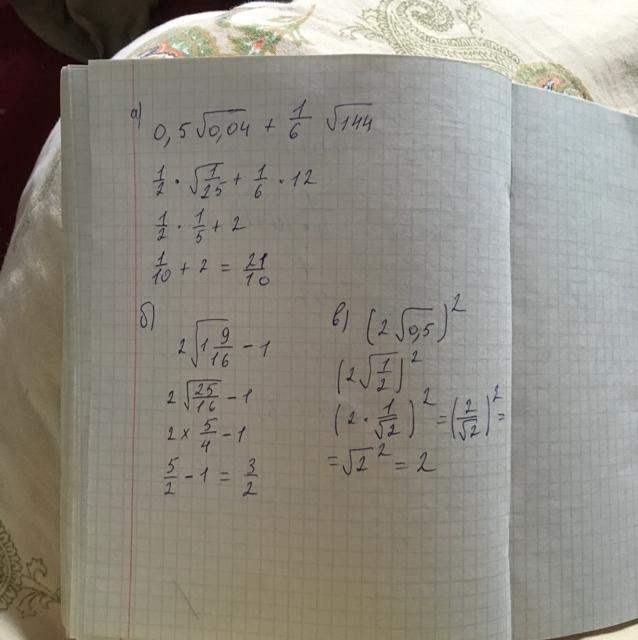 а) 0,5√0,04 + 1/6 √144
1/2 · √1/25 + 1/6 · 12
1/2 · 1/5 + 2
1/10 + 2 = 21/10
б) 2√1 9/16 − 1
2√25/16 − 1
2 × 5/4 − 1
5/2 − 1 = 3/2
в) (2√0,5)²
(2√1/2)²
(2 · 1/√2)² = (2/√2)² =
= √2² = 2